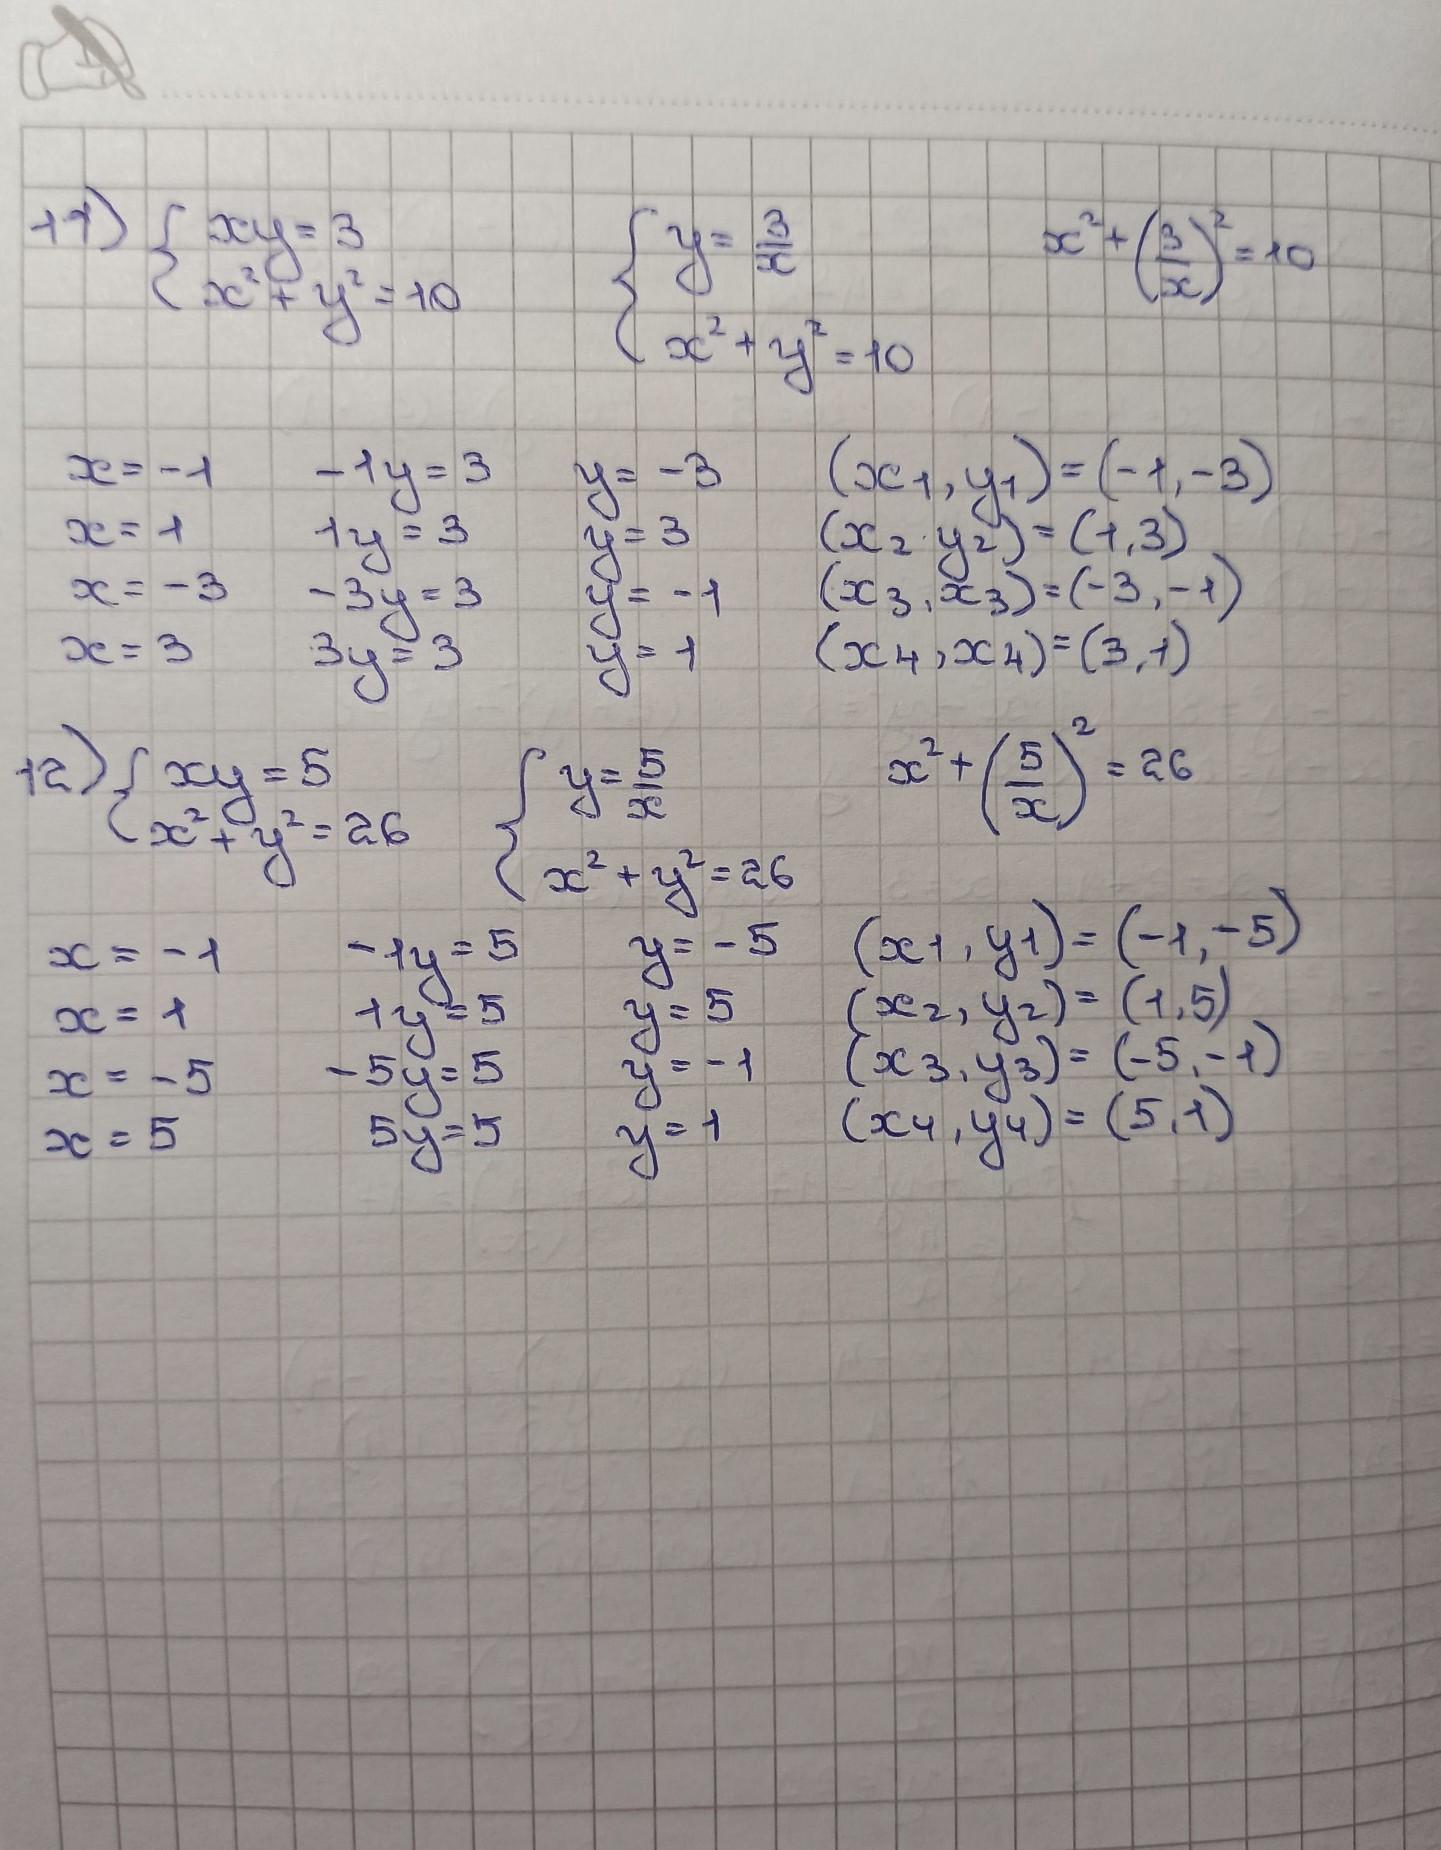 11) { xy = 3    { y = 3/x    x² + (3/x)² = 10
x² + y² = 10    x² + y² = 10
x = -1    -1y = 3    y = -3    (x1, y1) = (-1, -3)
x = 1    1y = 3    y = 3    (x2 y2) = (1, 3)
x = -3    -3y = 3    y = -1    (x3, x3) = (-3, -1)
x = 3    3y = 3    y = 1    (x4, x4) = (3, 1)
12) { xy = 5    { y = 5/x    x² + (5/x)² = 26
x² + y² = 26    x² + y² = 26
x = -1    -1y = 5    y = -5    (x1, y1) = (-1, -5)
x = 1    1y = 5    y = 5    (x2, y2) = (1, 5)
x = -5    -5y = 5    y = -1    (x3, y3) = (-5, -1)
x = 5    5y = 5    y = 1    (x4, y4) = (5, 1)